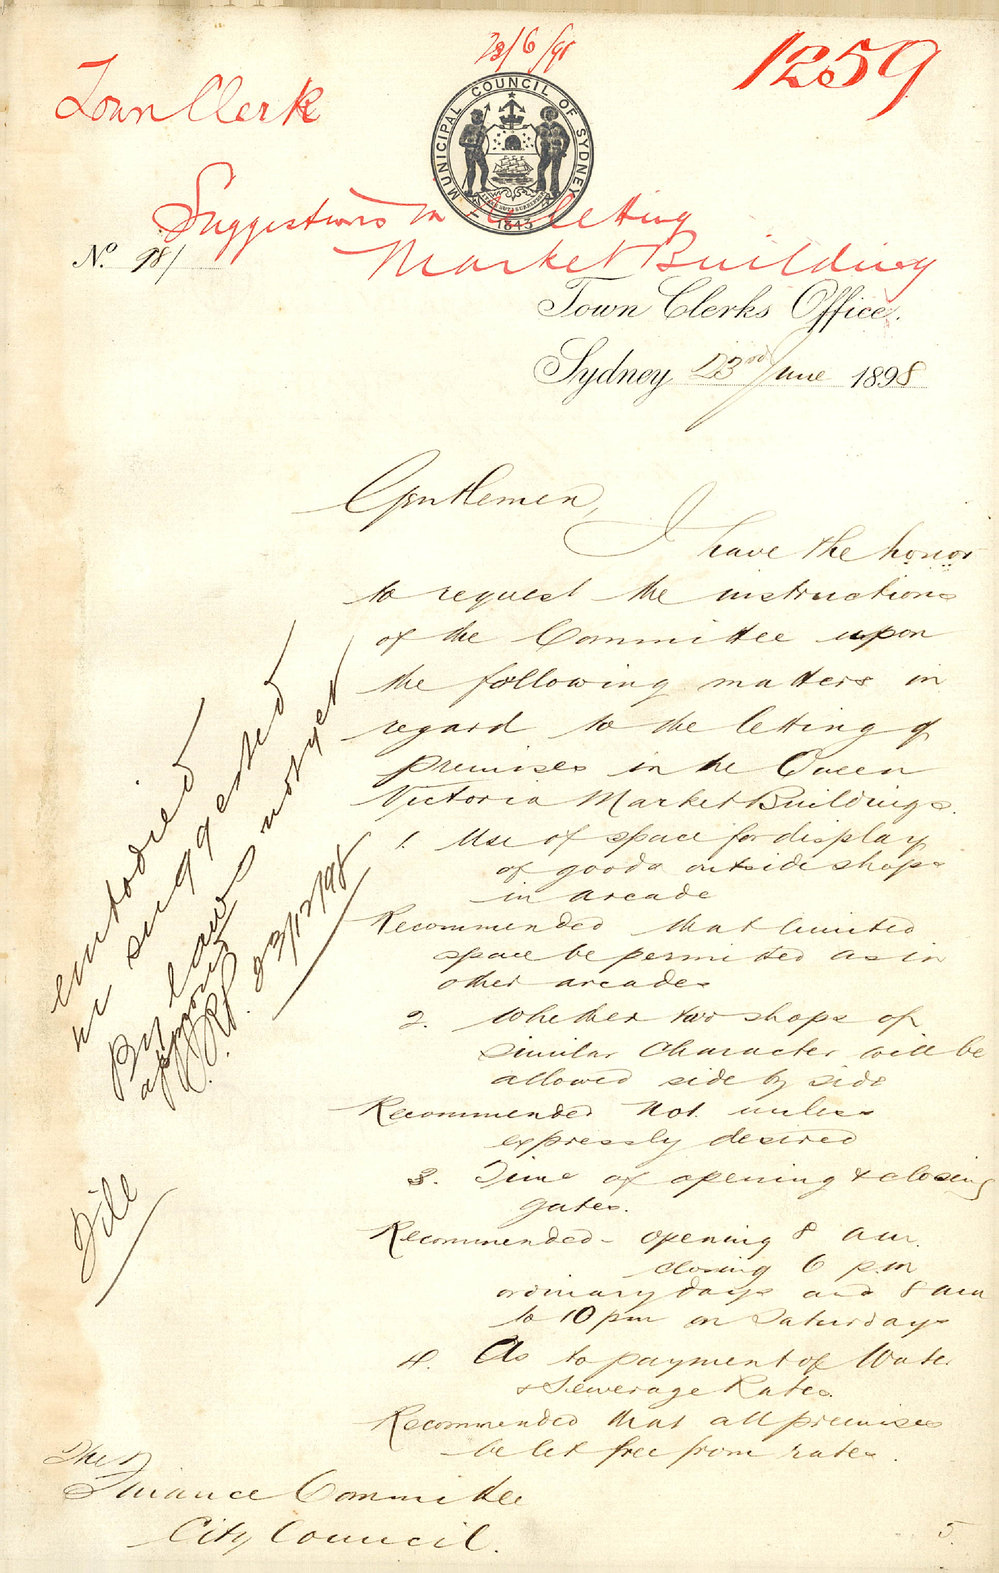 28/6/98
1259
Town Clerk
MUNICIPAL COUNCIL OF SYDNEY
1843
Suggestions on letting
Market Building
No. 981
Town Clerks Office.
Sydney 23rd June 1898
Gentlemen,
I have the honor
to request the instructions
of the Committee upon
the following matters in
regard to the letting of
premises in the Queen
Victoria Market Buildings.
1. Use of space for display
of goods outside shops
in arcade
Recommended that limited
space be permitted as in
other arcades
2. Whether two shops of
similar Character will be
allowed side by side
Recommended Not unless
expressly desired
3. Time of opening & closing
gates.
Recommended - opening 8 am.
closing 6 pm
ordinary days and 8 am
to 10 pm on Saturdays
4. As to payment of Water
& Sewerage Rates.
Recommended that all premises
be let free from rates.
The
Finance Committee
City Council.
5
embodied
as suggested
By laws not yet
approved
23/12/98
File